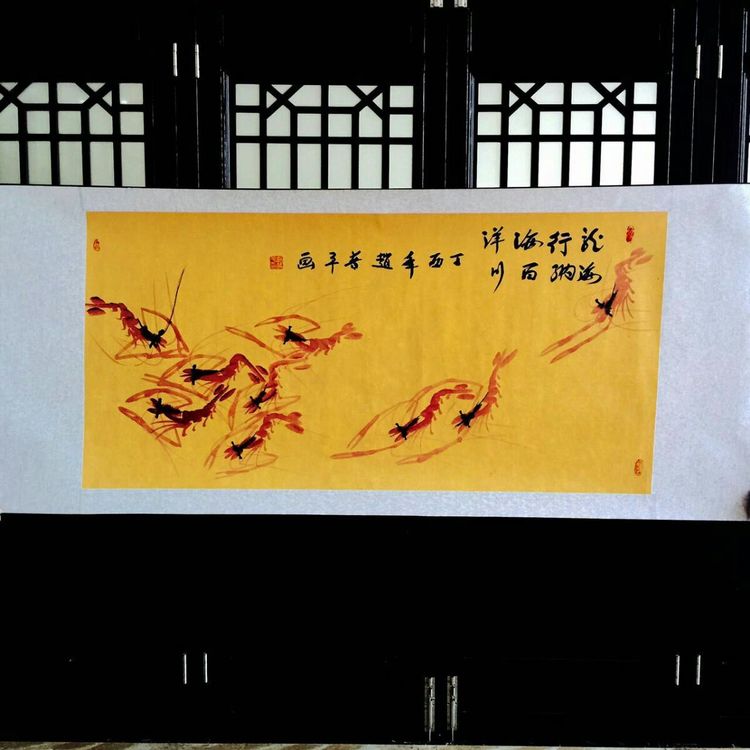 龙行海洋
海纳百川
丁酉年趙平画